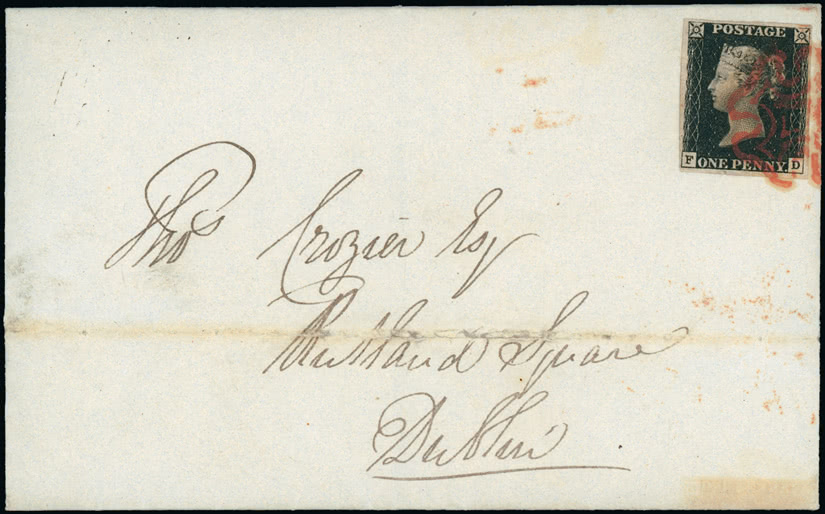 POSTAGE
F ONE PENNY. D
Thos Crozier Esq
Rutland Square
Dublin